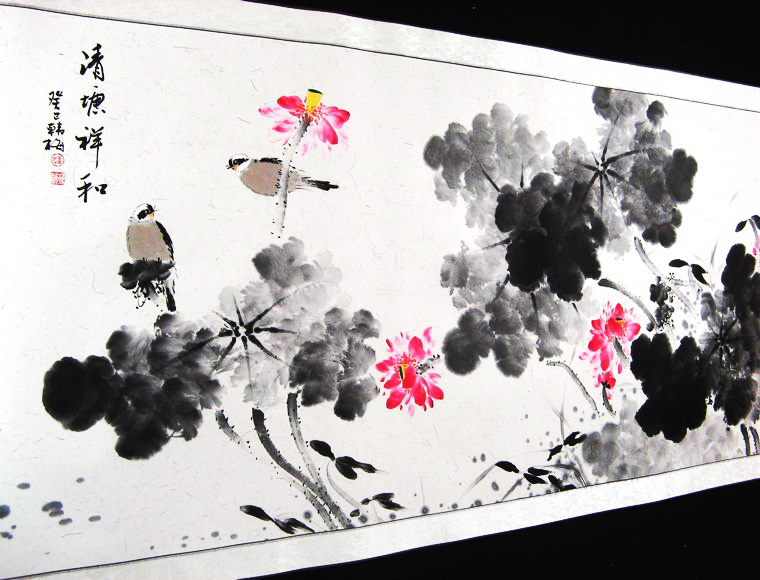 清塘祥和
癸巳韩梅